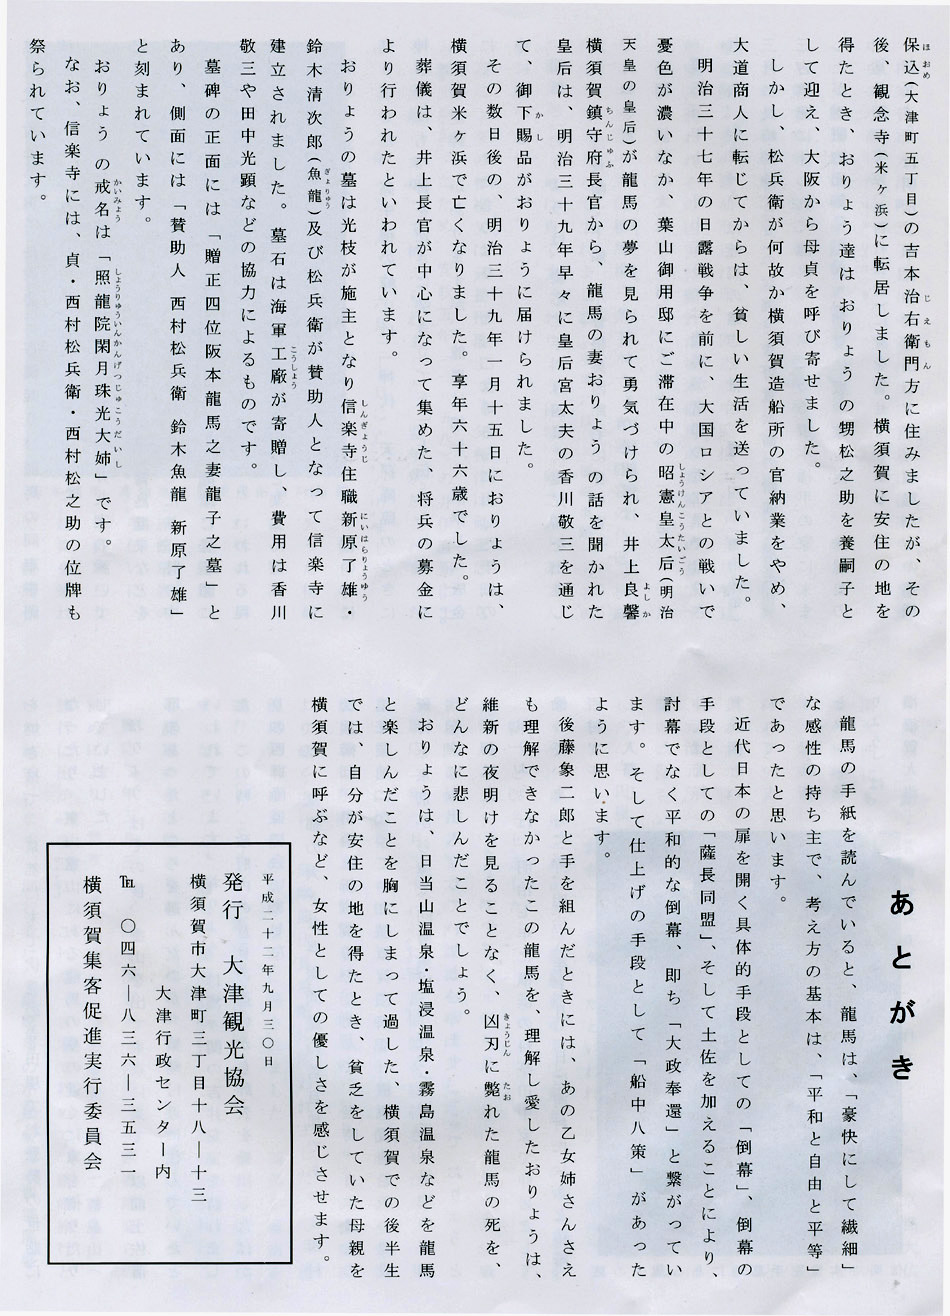 保込(大津町五丁目)の吉本治右衛門方に住みましたが、その
後、観念寺(米ヶ浜)に転居しました。横須賀に安住の地を
得たとき、おりょう達は おりょう の甥松之助を養嗣子と
して迎え、大阪から母貞を呼び寄せました。
しかし、松兵衛が何故か横須賀造船所の官納業をやめ、
大道商人に転じてからは、貧しい生活を送っていました。
明治三十七年の日露戦争を前に、大国ロシアとの戦いで
憂色が濃いなか、葉山御用邸にご滞在中の昭憲皇太后(明治
天皇の皇后)が龍馬の夢を見られて勇気づけられ、井上良馨
横須賀鎮守府長官から、龍馬の妻おりょう の話を聞かれた
皇后は、明治三十九年早々に皇后宮太夫の香川敬三を通じ
て、御下賜品がおりょうに届けられました。
その数日後の、明治三十九年一月十五日におりょうは、
横須賀米ヶ浜で亡くなりました。享年六十六歳でした。
葬儀は、井上長官が中心になって集めた、将兵の募金に
より行われたといわれています。
おりょうの墓は光枝が施主となり信楽寺住職新原了雄
鈴木清次郎(魚龍)及び松兵衛が賛助人となって信楽寺に
建立されました。墓石は海軍工廠が寄贈し、費用は香川
敬三や田中光顕などの協力によるものです。
墓碑の正面には「贈正四位阪本龍馬之妻龍子之墓」と
あり、側面には「賛助人 西村松兵衛 鈴木魚龍 新原了雄」
と刻まれています。
おりょう の戒名は「照龍院閑月珠光大姉」です。
なお、信楽寺には、貞・西村松兵衛・西村松之助の位牌も
祭られています。
あとがき
龍馬の手紙を読んでいると、龍馬は、「豪快にして繊細」
な感性の持ち主で、考え方の基本は、「平和と自由と平等」
であったと思います。
近代日本の扉を開く具体的手段としての「倒幕」、倒幕の
手段としての「薩長同盟」、そして土佐を加えることにより、
討幕でなく平和的な倒幕、即ち 「大政奉還」と繋がってい
ます。そして仕上げの手段として「船中八策」があった
ように思います。
後藤象二郎と手を組んだときには、あの乙女姉さんさえ
も理解できなかったこの龍馬を、理解し愛したおりょうは、
維新の夜明けを見ることなく、凶刃に斃れた龍馬の死を、
どんなに悲しんだことでしょう。
おりょうは、日当山温泉・塩浸温泉・霧島温泉などを龍馬
と楽しんだことを胸にしまって過した、横須賀での後半生
では、自分が安住の地を得たとき、貧乏をしていた母親を
横須賀に呼ぶなど、女性としての優しさを感じさせます。
平成二十二年九月三〇日
発行 大津観光協会
横須賀市大津町三丁目十八―十三
大津行政センター内
℡ 〇四六―八三六―三五三一
横須賀集客促進実行委員会